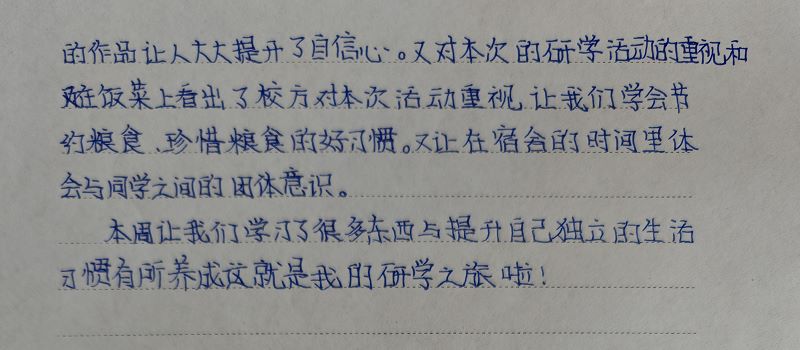 的作品让人大大提升了自信心。又对本次的研学活动的重视和
在饭菜上看出了校方对本次活动重视,让我们学会节
约粮食、珍惜粮食的好习惯。又让在宿舍的时间里体
会与同学之间的团体意识。
本周让我们学习了很多东西与提升自己独立的生活
习惯有所养成这就是我的研学之旅啦!